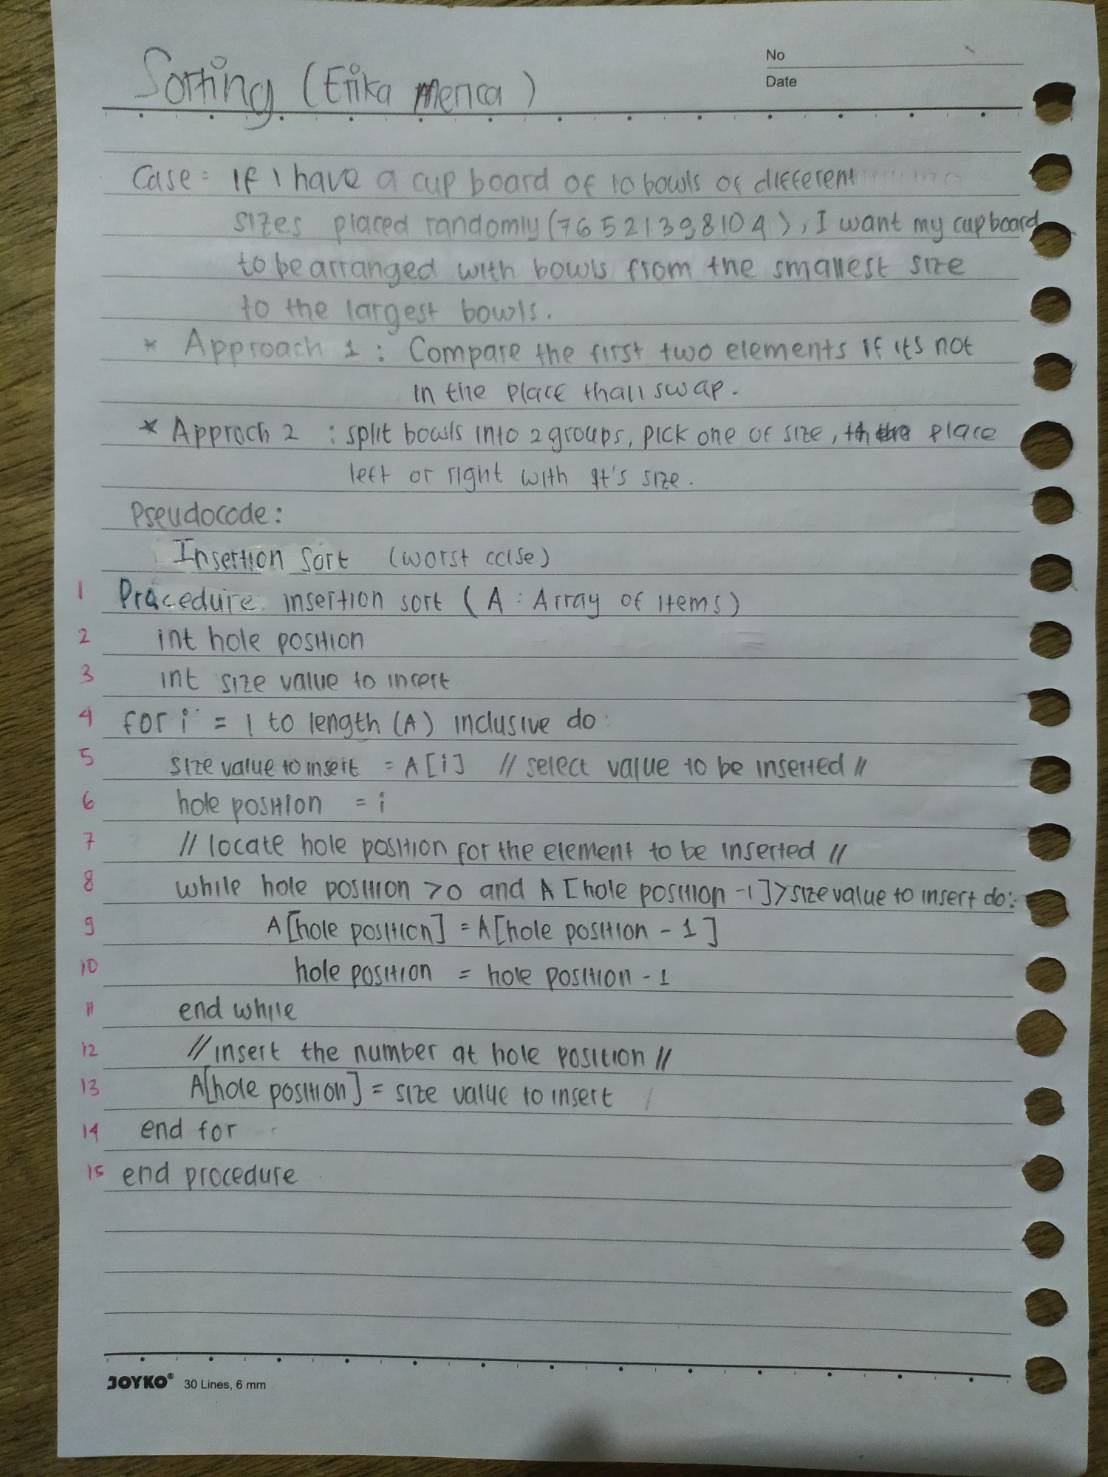 No
Sorting (Erika Merica)
Date
Case = If I have a cup board of 10 bowls of different
sizes placed randomly (7 6 5 2 1 3 9 8 10 4), I want my cup board
to be arranged with bowls from the smallest size
to the largest bowls.
* Approach 1 : Compare the first two elements if its not
in the place thall swap.
* Approch 2 : split bowls into 2 groups, pick one of size, place
left or right with It's size.
Pseudocode :
Insertion Sort (worst case)
1 Pracedure insertion sort ( A : Array of Items )
2 int hole position
3 int size value to incert
4 for i = 1 to length (A) inclusive do :
5 size value to insert = A [i] // select value to be inserted //
6 hole position = i
7 // locate hole position for the element to be inserted //
8 while hole position > 0 and A [hole position - 1] > size value to insert do :
9 A [hole position] = A [hole position - 1 ]
10 hole position = hole position - 1
11 end while
12 // insert the number at hole position //
13 A[hole position] = size value to insert
14 end for
15 end procedure
JOYKO® 30 Lines, 6 mm